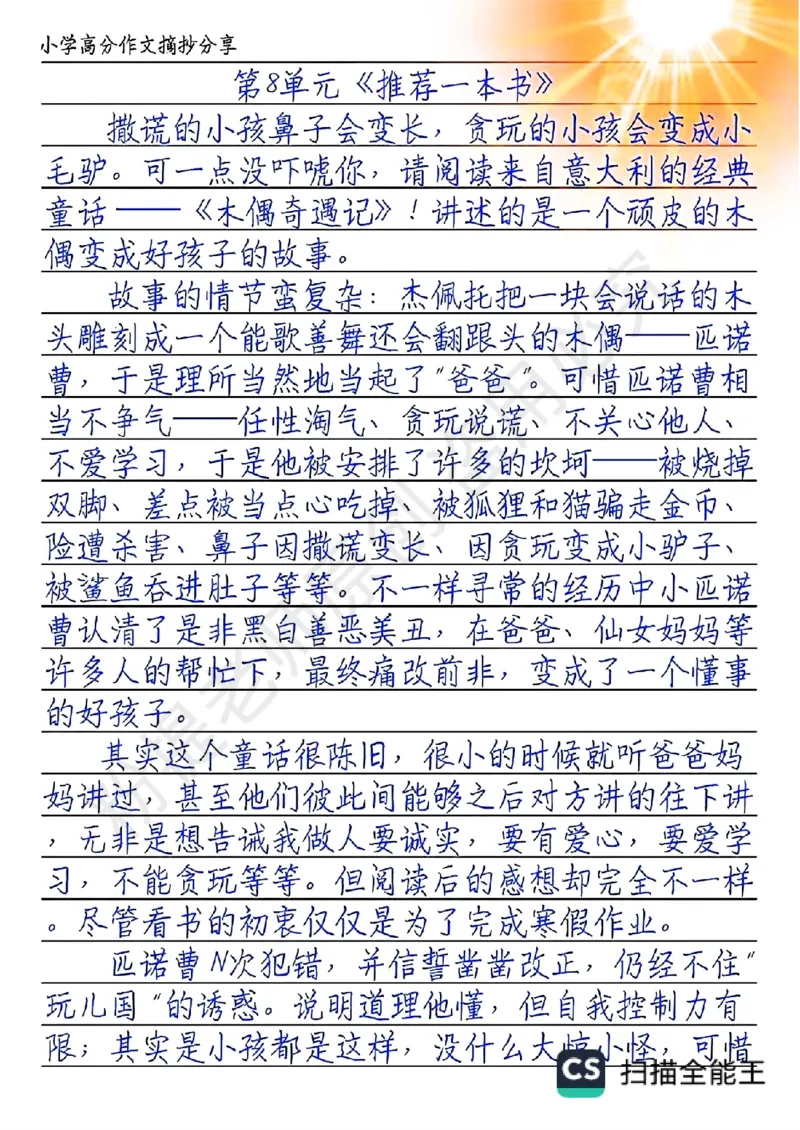 小学高分作文摘抄分享
第8单元《推荐一本书》
撒谎的小孩鼻子会变长，贪玩的小孩会变成小
毛驴。可一点没吓唬你，请阅读来自意大利的经典
童话——《木偶奇遇记》！讲述的是一个顽皮的木
偶变成好孩子的故事。
故事的情节蛮复杂：杰佩托把一块会说话的木
头雕刻成一个能歌善舞还会翻跟头的木偶——匹诺
曹，于是理所当然地当起了“爸爸”。可惜匹诺曹相
当不争气——任性淘气、贪玩说谎、不关心他人、
不爱学习，于是他被安排了许多的坎坷——被烧掉
双脚、差点被当点心吃掉、被狐狸和猫骗走金币、
险遭杀害、鼻子因撒谎变长、因贪玩变成小驴子、
被鲨鱼吞进肚子等等。不一样寻常的经历中小匹诺
曹认清了是非黑白善恶美丑，在爸爸、仙女妈妈等
许多人的帮忙下，最终痛改前非，变成了一个懂事
的好孩子。
其实这个童话很陈旧，很小的时候就听爸爸妈
妈讲过，甚至他们彼此间能够之后对方讲的往下讲
，无非是想告诫我做人要诚实，要有爱心，要爱学
习，不能贪玩等等。但阅读后的感想却完全不一样
。尽管看书的初衷仅仅是为了完成寒假作业。
匹诺曹N次犯错，并信誓凿凿改正，仍经不住“
玩儿国“的诱惑。说明道理他懂，但自我控制力有
限；其实是小孩都是这样，没什么大惊小怪，可惜
CS 扫描全能王